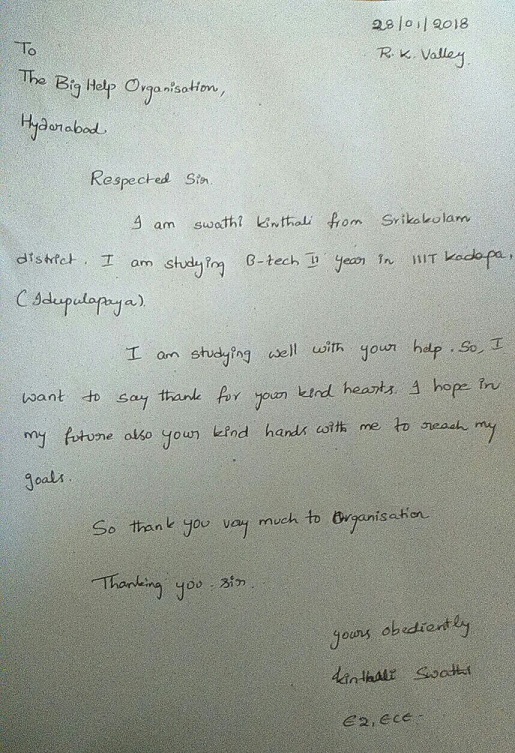 28/01/2018
R.K. Valley
To
The Big Help Organisation,
Hyderabad.
Respected Sir.
I am swathi kinthali from Srikakulam
district. I am studying B-tech II year in IIIT kadapa,
(Idupulapaya).
I am studying well with your help. So, I
want to say thank for your kind hearts. I hope in
my future also your kind hands with me to reach my
goals.
So thank you vary much to Organisation
Thanking you. sir.
yours obediently
kinthali Swathi
E2, ECE-